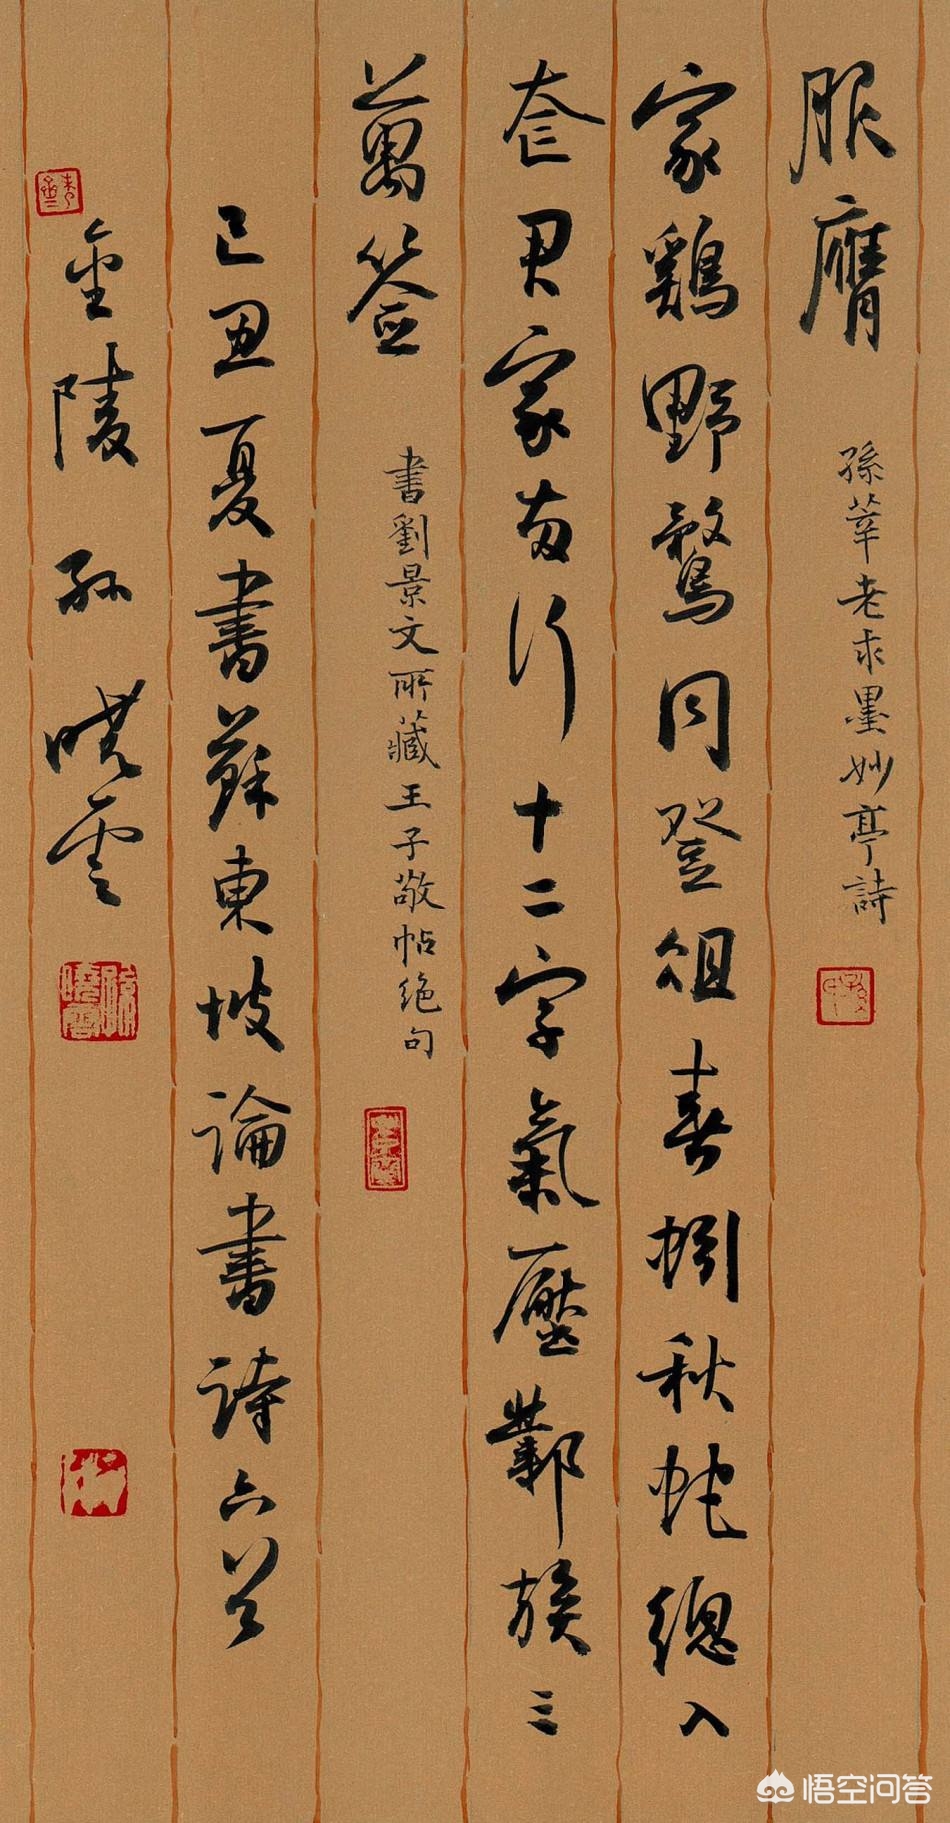 服膺 孫莘老求墨妙亭詩
家鷄野鶩同登俎春蚓秋蛇總入
奁君家兩行十二字氣壓鄴侯三
萬签 書劉景文所藏王子敬帖绝句
己丑夏書蘇東坡論書詩六首
金陵孫曉雲
悟空问答